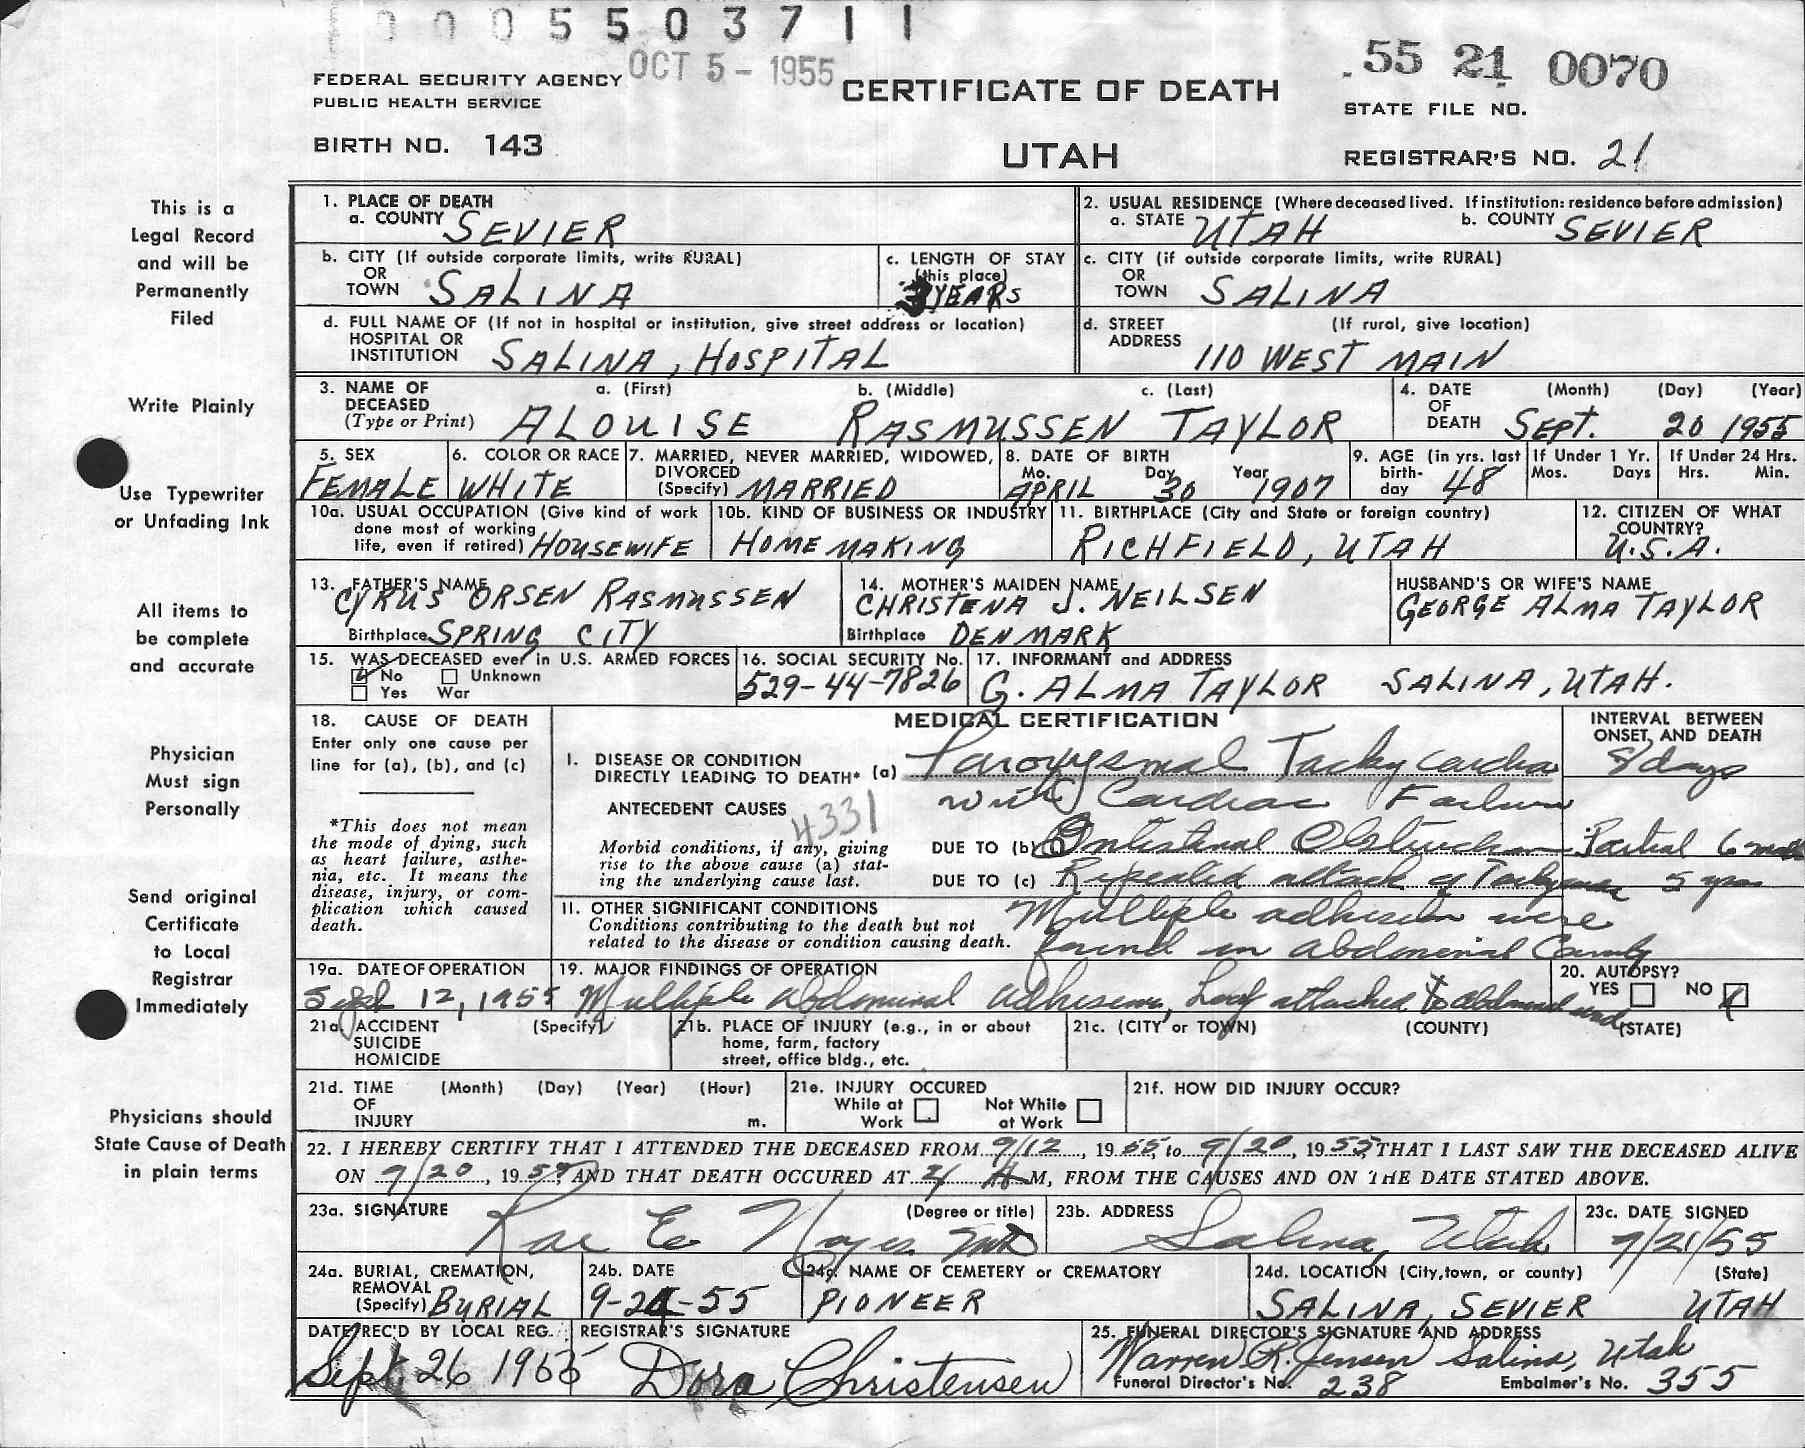 0005503711
OCT 5 - 1955
.55 21 0070
FEDERAL SECURITY AGENCY
PUBLIC HEALTH SERVICE
CERTIFICATE OF DEATH
STATE FILE NO.
BIRTH NO. 143
UTAH
REGISTRAR'S NO. 21
This is a
Legal Record
and will be
Permanently
Filed
Write Plainly
Use Typewriter
or Unfading Ink
All items to
be complete
and accurate
Physician
Must sign
Personally
Send original
Certificate
to Local
Registrar
Immediately
Physicians should
State Cause of Death
in plain terms
1. PLACE OF DEATH
a. COUNTY SEVIER
2. USUAL RESIDENCE (Where deceased lived. If institution: residence before admission)
a. STATE UTAH b. COUNTY SEVIER
b. CITY (If outside corporate limits, write RURAL)
OR
TOWN SALINA
c. LENGTH OF STAY
(this place)
YEARS
c. CITY (if outside corporate limits, write RURAL)
OR
TOWN SALINA
d. FULL NAME OF (If not in hospital or institution, give street address or location)
HOSPITAL OR
INSTITUTION SALINA, HOSPITAL
d. STREET (If rural, give location)
ADDRESS 110 WEST MAIN
3. NAME OF DECEASED (Type or Print)
a. (First) b. (Middle) c. (Last)
ALOUISE RASMUSSEN TAYLOR
4. DATE OF DEATH (Month) (Day) (Year)
SEPT. 20 1955
5. SEX
FEMALE
6. COLOR OR RACE
WHITE
7. MARRIED, NEVER MARRIED, WIDOWED,
DIVORCED
(Specify) MARRIED
8. DATE OF BIRTH
Mo. Day Year
APRIL 30 1907
9. AGE (in yrs. last
birth-
day 48
If Under 1 Yr.
Mos. Days
If Under 24 Hrs.
Hrs. Min.
10a. USUAL OCCUPATION (Give kind of work
done most of working
life, even if retired) HOUSEWIFE
10b. KIND OF BUSINESS OR INDUSTRY
HOMEMAKING
11. BIRTHPLACE (City and State or foreign country)
RICHFIELD, UTAH
12. CITIZEN OF WHAT
COUNTRY?
U.S.A.
13. FATHER'S NAME
CYRUS ORSEN RASMUSSEN
Birthplace SPRING CITY
14. MOTHER'S MAIDEN NAME
CHRISTENA J. NEILSEN
Birthplace DENMARK
HUSBAND'S OR WIFE'S NAME
GEORGE ALMA TAYLOR
15. WAS DECEASED ever in U.S. ARMED FORCES
No Unknown
Yes War
16. SOCIAL SECURITY No.
529-44-7826
17. INFORMANT and ADDRESS
G. ALMA TAYLOR SALINA, UTAH.
18. CAUSE OF DEATH
Enter only one cause per
line for (a), (b), and (c)
*This does not mean
the mode of dying, such
as heart failure, asthe-
nia, etc. It means the
disease, injury, or com-
plication which caused
death.
MEDICAL CERTIFICATION
INTERVAL BETWEEN
ONSET, AND DEATH
I. DISEASE OR CONDITION
DIRECTLY LEADING TO DEATH* (a) Paroxysmal Tachycardia 8 days
with Cardiac Failure
ANTECEDENT CAUSES 4331
Morbid conditions, if any, giving
rise to the above cause (a) stat-
ing the underlying cause last.
DUE TO (b) Intestinal Obstruction Partial 6
DUE TO (c) Repeated attack of 5
11. OTHER SIGNIFICANT CONDITIONS
Conditions contributing to the death but not
related to the disease or condition causing death.
Multiple adhesion were
found in abdominal
19a. DATE OF OPERATION
Sept 12, 1955
19. MAJOR FINDINGS OF OPERATION
Multiple abdominal adhesions, attached to abdominal
20. AUTOPSY?
YES NO
21a. ACCIDENT (Specify)
SUICIDE
HOMICIDE
21b. PLACE OF INJURY (e.g., in or about
home, farm, factory
street, office bldg., etc.
21c. (CITY or TOWN) (COUNTY) (STATE)
21d. TIME (Month) (Day) (Year) (Hour)
OF
INJURY m.
21e. INJURY OCCURED
While at Work Not While at Work
21f. HOW DID INJURY OCCUR?
22. I HEREBY CERTIFY THAT I ATTENDED THE DECEASED FROM 9/12, 1955, to 9/20, 1955 THAT I LAST SAW THE DECEASED ALIVE
ON 9/20, 1955, AND THAT DEATH OCCURED AT 4 A M, FROM THE CAUSES AND ON THE DATE STATED ABOVE.
23a. SIGNATURE (Degree or title)
Rae E. Noyes MD
23b. ADDRESS
Salina, Utah
23c. DATE SIGNED
9/21/55
24a. BURIAL, CREMATION,
REMOVAL
(Specify) BURIAL
24b. DATE
9-24-55
24c. NAME OF CEMETERY or CREMATORY
PIONEER
24d. LOCATION (City, town, or county) (State)
SALINA, SEVIER UTAH
DATE REC'D BY LOCAL REG.
Sept. 26 1955
REGISTRAR'S SIGNATURE
Dora Christensen
25. FUNERAL DIRECTOR'S SIGNATURE AND ADDRESS
Warren R. Jensen Salina, Utah
Funeral Director's No. 238 Embalmer's No. 355